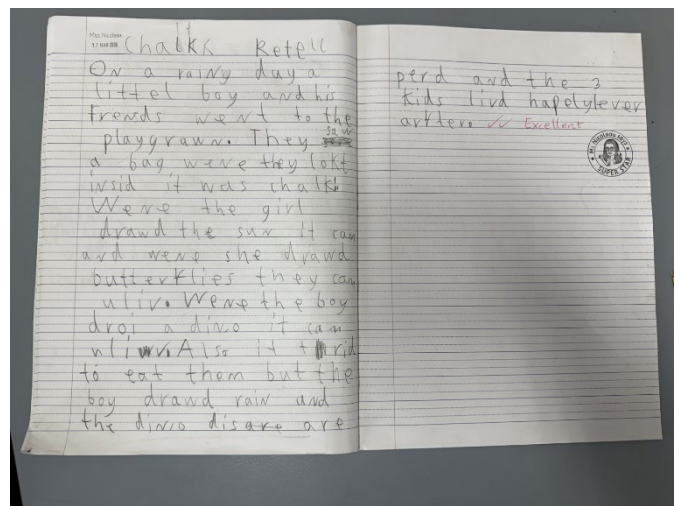 Mrs Nicolson
17 MAR
Chalkk Retell
On a rainy day a
littel boy and his
frends went to the
playgrawn. They saw
a bag wene they lokt
insid it was chalk!
Wene the girl
drawd the sun it cam
and wene she drawd
butterflies they cam
uliv. Wene the boy
droi a dino it cam
uliv. Also it trid
to eat them but the
boy drawd rain and
the dino disare are
perd and the 3
kids livd hapelylever
arfter. Excellent
Ms Nicolson says
SUPER STAR